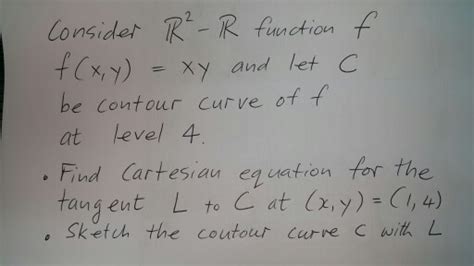 Consider ℝ² - ℝ function f
f(x,y) = xy and let C
be contour curve of f
at level 4.
• Find Cartesian equation for the
tangent L to C at (x,y) = (1,4)
• Sketch the contour curve C with L